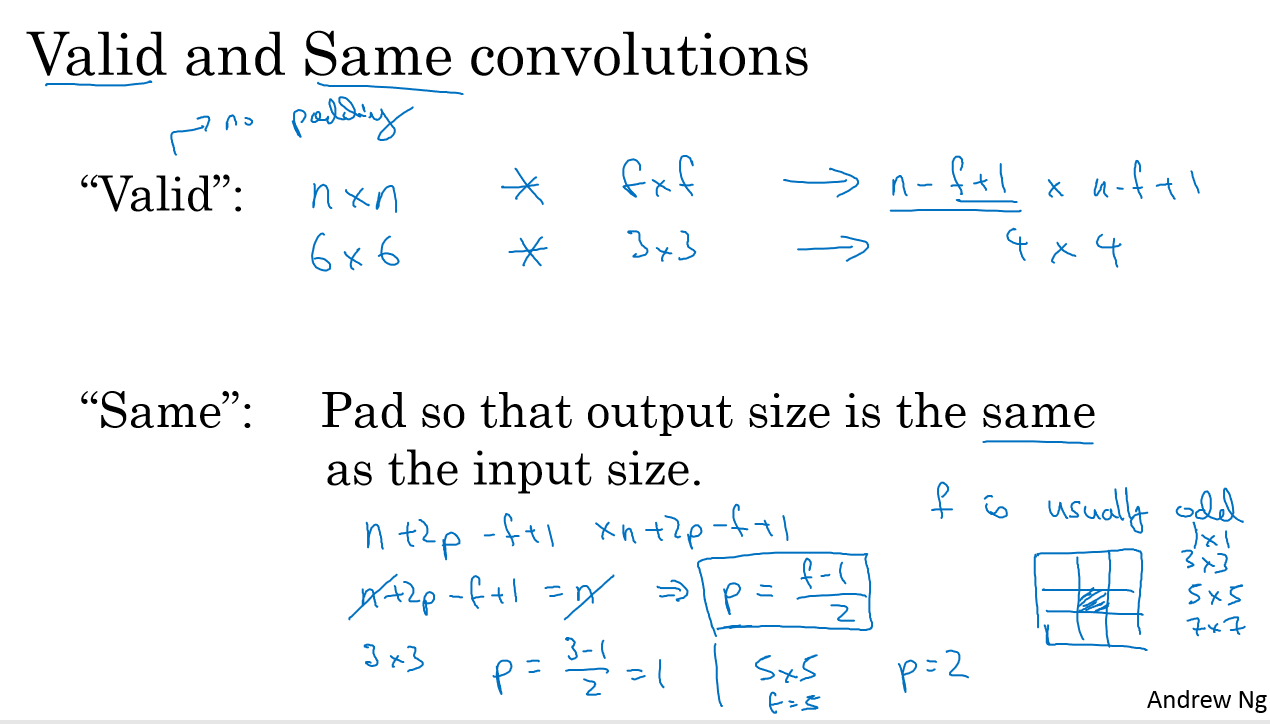 Valid and Same convolutions
→ no padding
“Valid”: n×n * f×f → n-f+1 × n-f+1
6×6 * 3×3 → 4 × 4
“Same”: Pad so that output size is the same
as the input size.
n+2p-f+1 ×n+2p-f+1
n+2p-f+1 = n ⇒ p = f-1/2
3×3 p = 3-1/2 = 1 | 5×5 p=2
f=5
f is usually odd
1×1
3×3
5×5
7×7
Andrew Ng